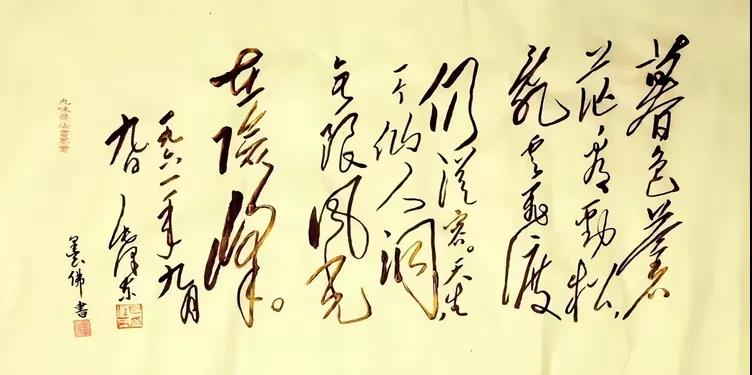 暮色蒼
茫看勁松,
亂雲飛渡
仍從容。天生
一个仙人洞
无限風光
在險峰。
一九六一年九月
九日 毛澤東
墨佛書